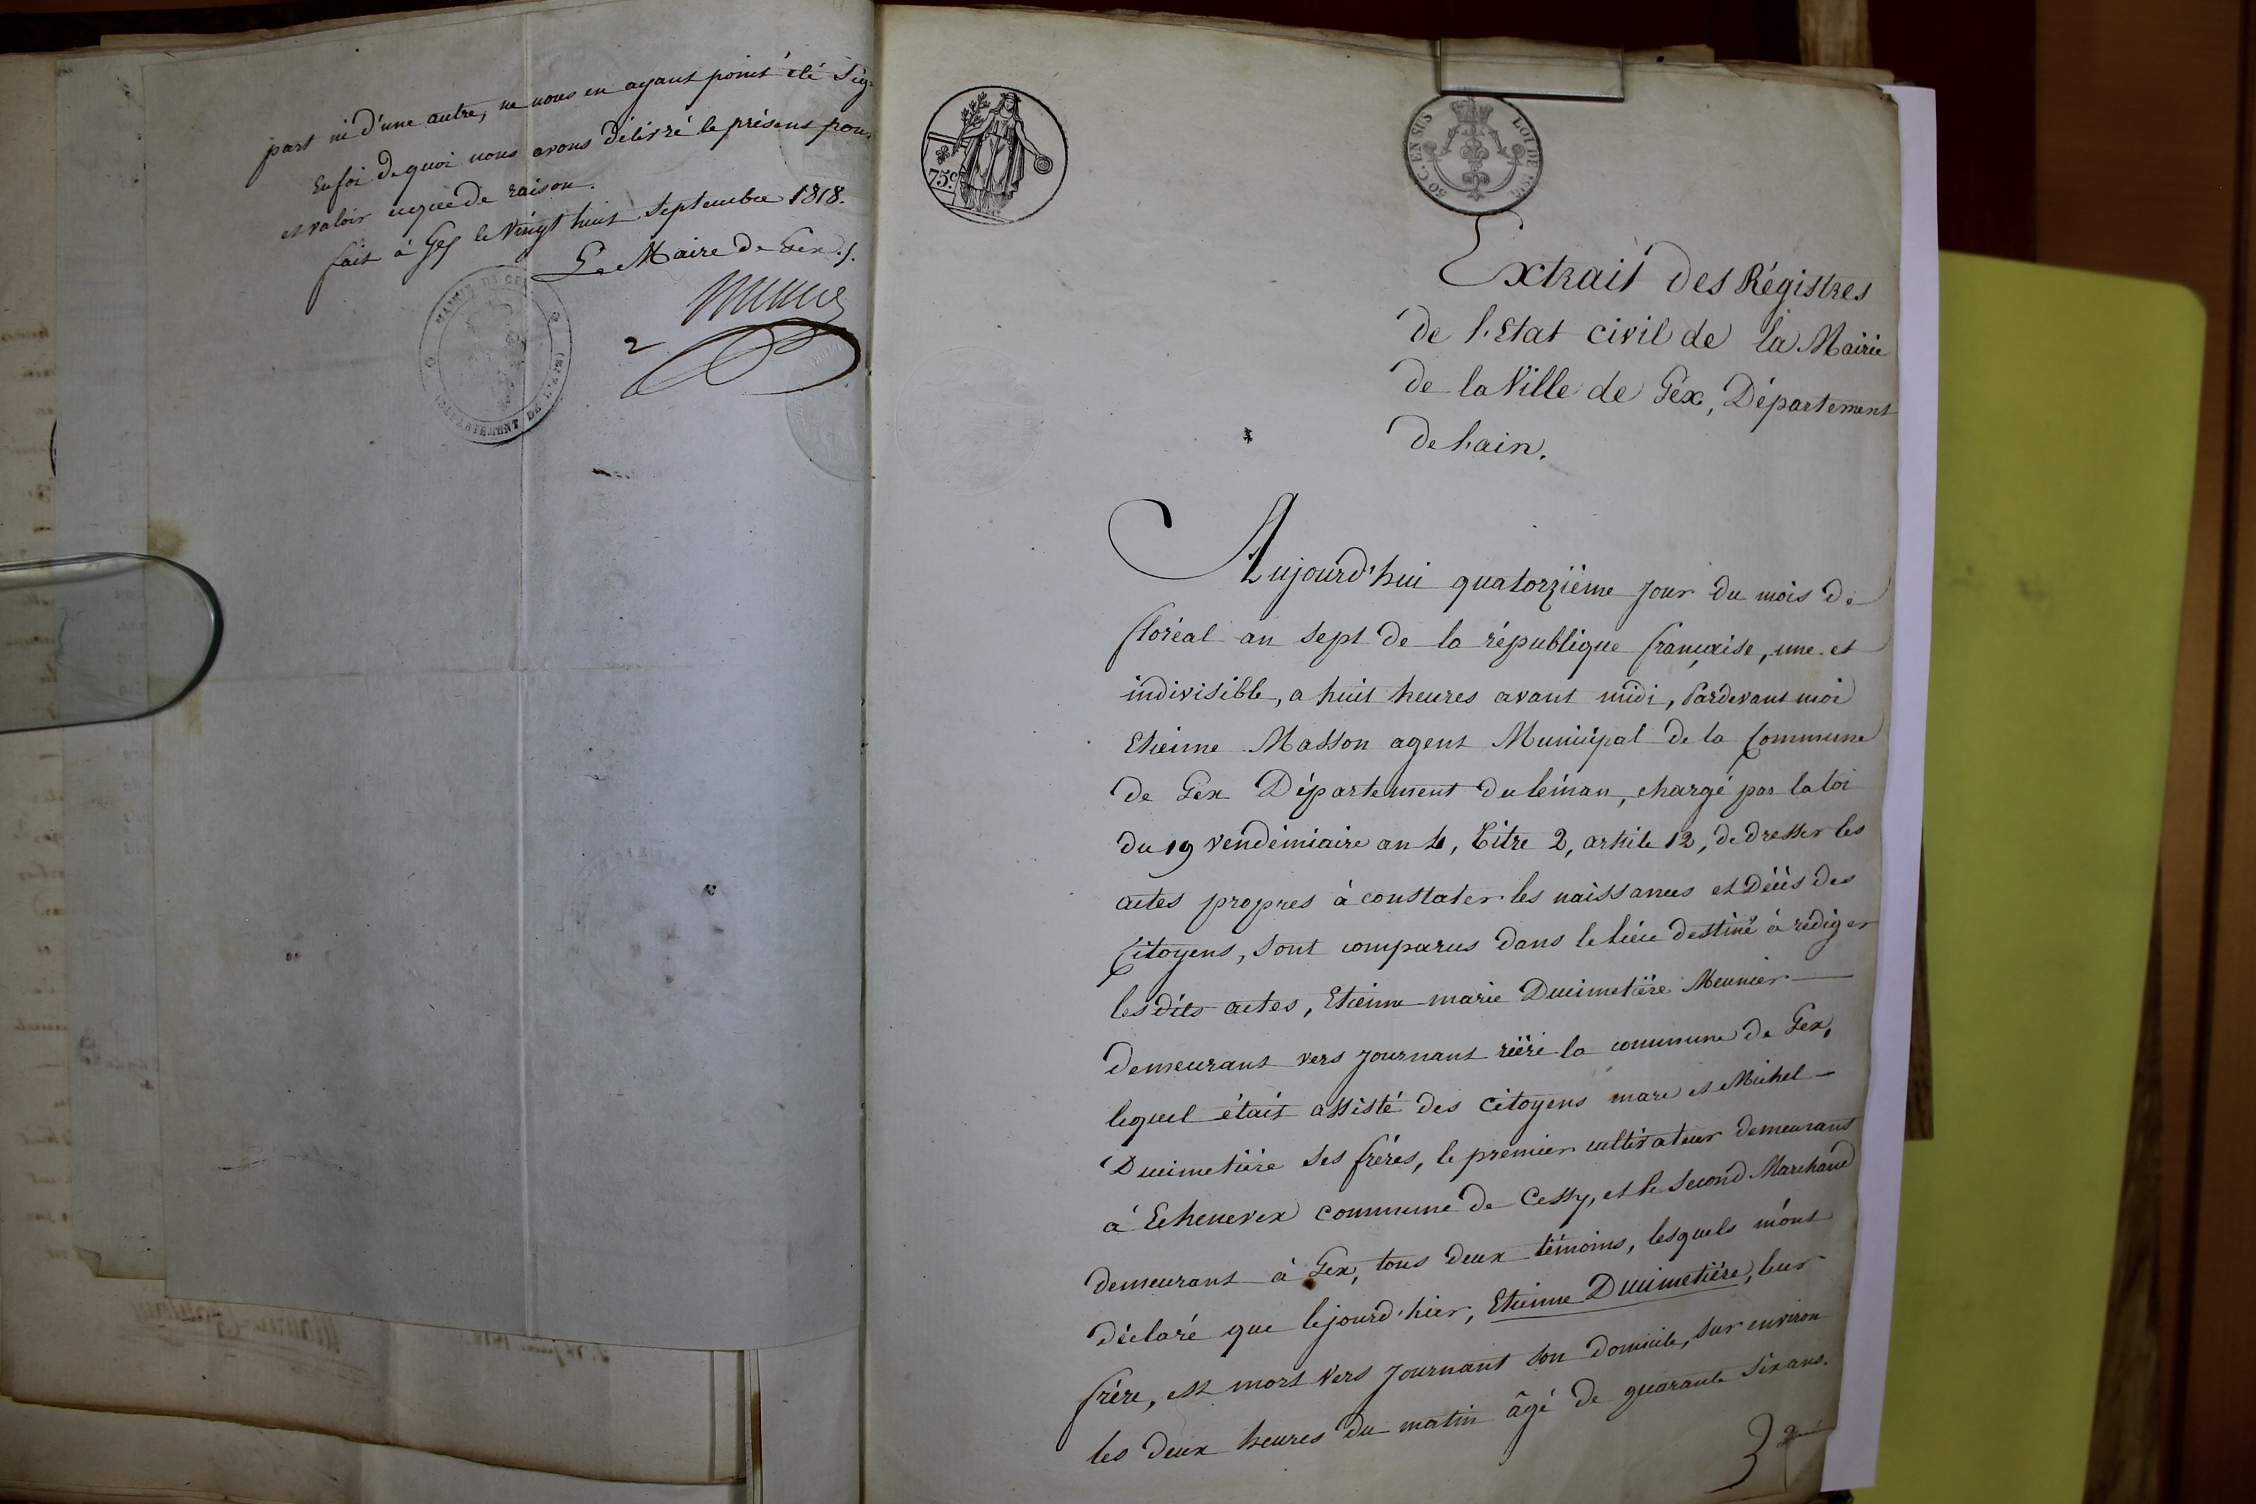 part ni d'une autre, ne nous en ayant point été sig-
En foi de quoi nous avons délivré le présent pour
et valoir ce que de raison.
fait à Gex le vingt huit Septembre 1818.
Le Maire de Gex.
2
MAIRIE DE GEX
DEPARTEMENT DE L'AIN
75 c
50 C. EN SUS
LOI DE
Extrait des Régistres
de l'Etat civil de la Mairie
de la Ville de Géx, Département
de l'ain.
Aujourd'hui quatorzième jour du mois de
floréal an sept de la république française, une et
indivisible, a huit heures avant midi, Pardevant moi
Etienne Masson agent Municipal de la Commune
de Gex Département du léman, chargé par la loi
du 19 vendémiaire an 4, Titre 2, article 12, de dresser les
actes propres à constater les naissances et décès des
Citoyens, sont comparus dans le lieu destiné à rédiger
les dits actes, Etienne marie Ducimetière Meunier
demeurant vers Journant rière la commune de Gex,
lequel était assisté des citoyens marc et Michel
Ducimetière ses frères, le premier cultivateur demeurant
à Echenevex commune de Cessy, et le second Marchand
demeurant à Gex, tous deux témoins, lesquels m'ont
déclaré que le jourd'hier, Etienne Ducimetière, leur
frère, est mort vers Journant son domicile, sur environ
les deux heures du matin âgé de quarante six ans.
3